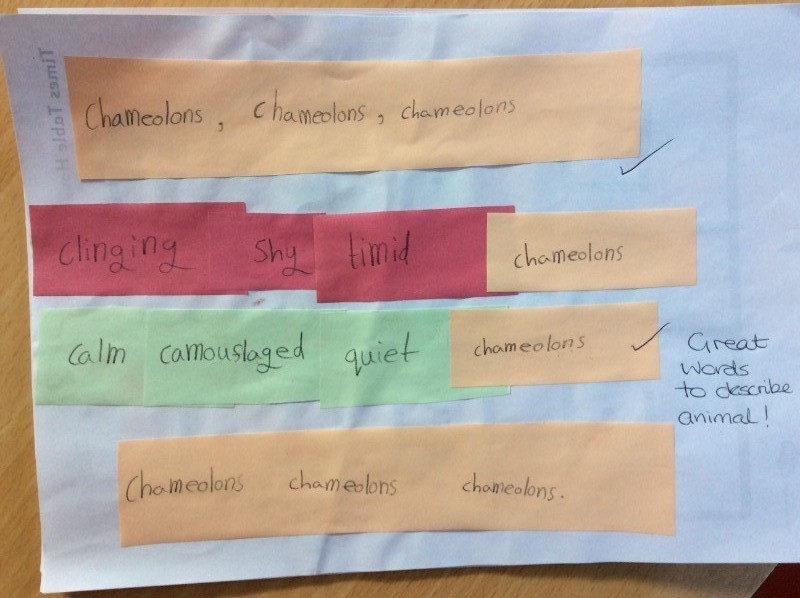 Chameolons, Chameolons, chameolons
clinging shy timid chameolons
calm camouslaged quiet chameolons
Great
words
to describe
animal!
Chameolons chameolons chameolons.